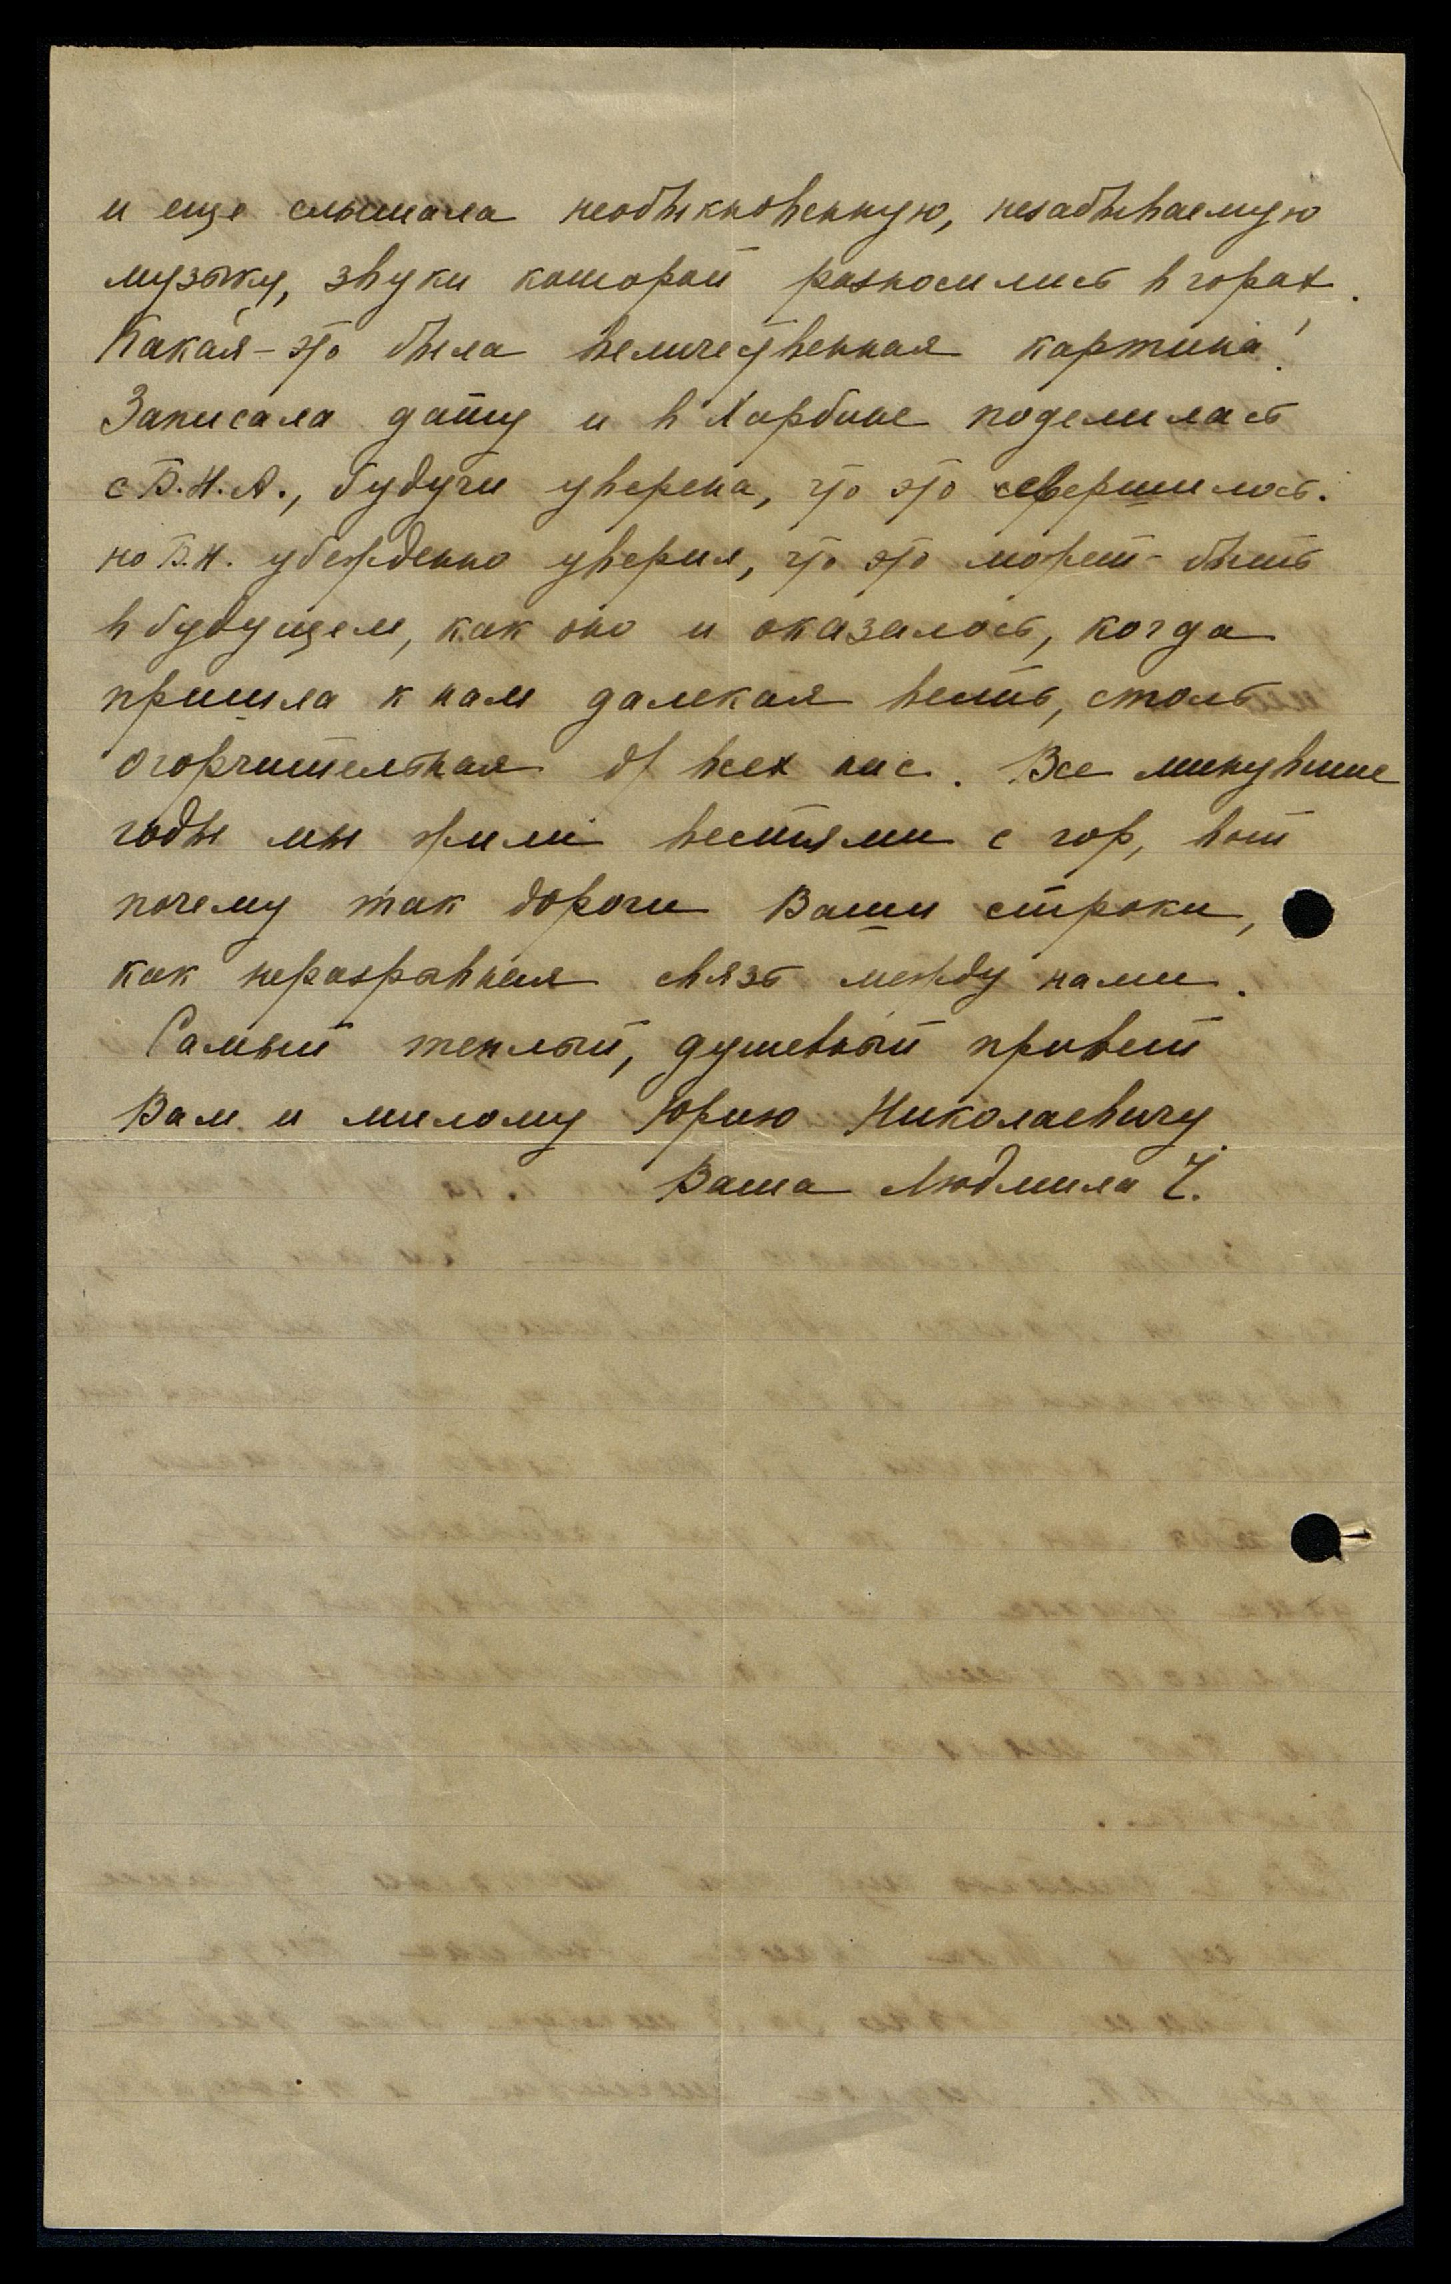 и еще слышала необыкновенную, незабываемую
музыку, звуки которой разносились в горах.
Какая-то была величественная картина!
Записала дату и в Харбине поделилась
с Б.Н.А., будучи уверена, что это свершилось.
но Б.Н. убежденно уверил, что это может-быть
в будущем, как оно и оказалось, когда
пришла к нам далекая весть, столь
огорчительная дл всех нас. Все минувшие
годы мы жили вестями с гор, вот
почему так дороги Ваши строки,
как неразрывная связь между нами.
Самый теплый, душевный привет
Вам и милому Юрию Николаевичу.
Ваша Людмила Ч.